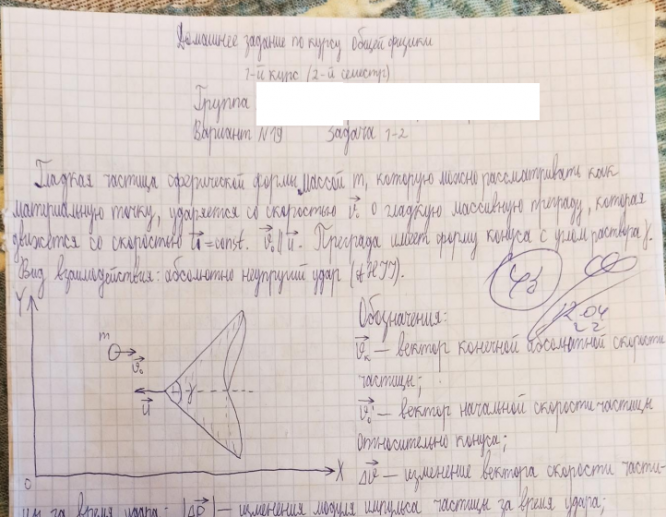 Домашнее задание по курсу общей физики
1-й курс (2-й семестр)
Группа
Вариант N19 Задача 1-2
Гладкая частица сферической формы массой m, которую можно рассматривать как
материальную точку, ударяется со скоростью v⃗₀ о гладкую массивную преграду, которая
движется со скоростью u⃗ = const. v⃗₀ ∥ u⃗. Преграда имеет форму конуса с углом раствора γ.
Вид взаимодействия: абсолютно неупругий удар (АНУ).
Y
m
v⃗₀
u⃗
γ
0
X
12.04
22
Обозначения:
v⃗ₖ — вектор конечной абсолютной скорости
частицы;
v⃗₀' — вектор начальной скорости частицы
относительно конуса;
Δv⃗ — изменение вектора скорости части-
цы за время удара; |Δp⃗| — изменения модуля импульса частицы за время удара;